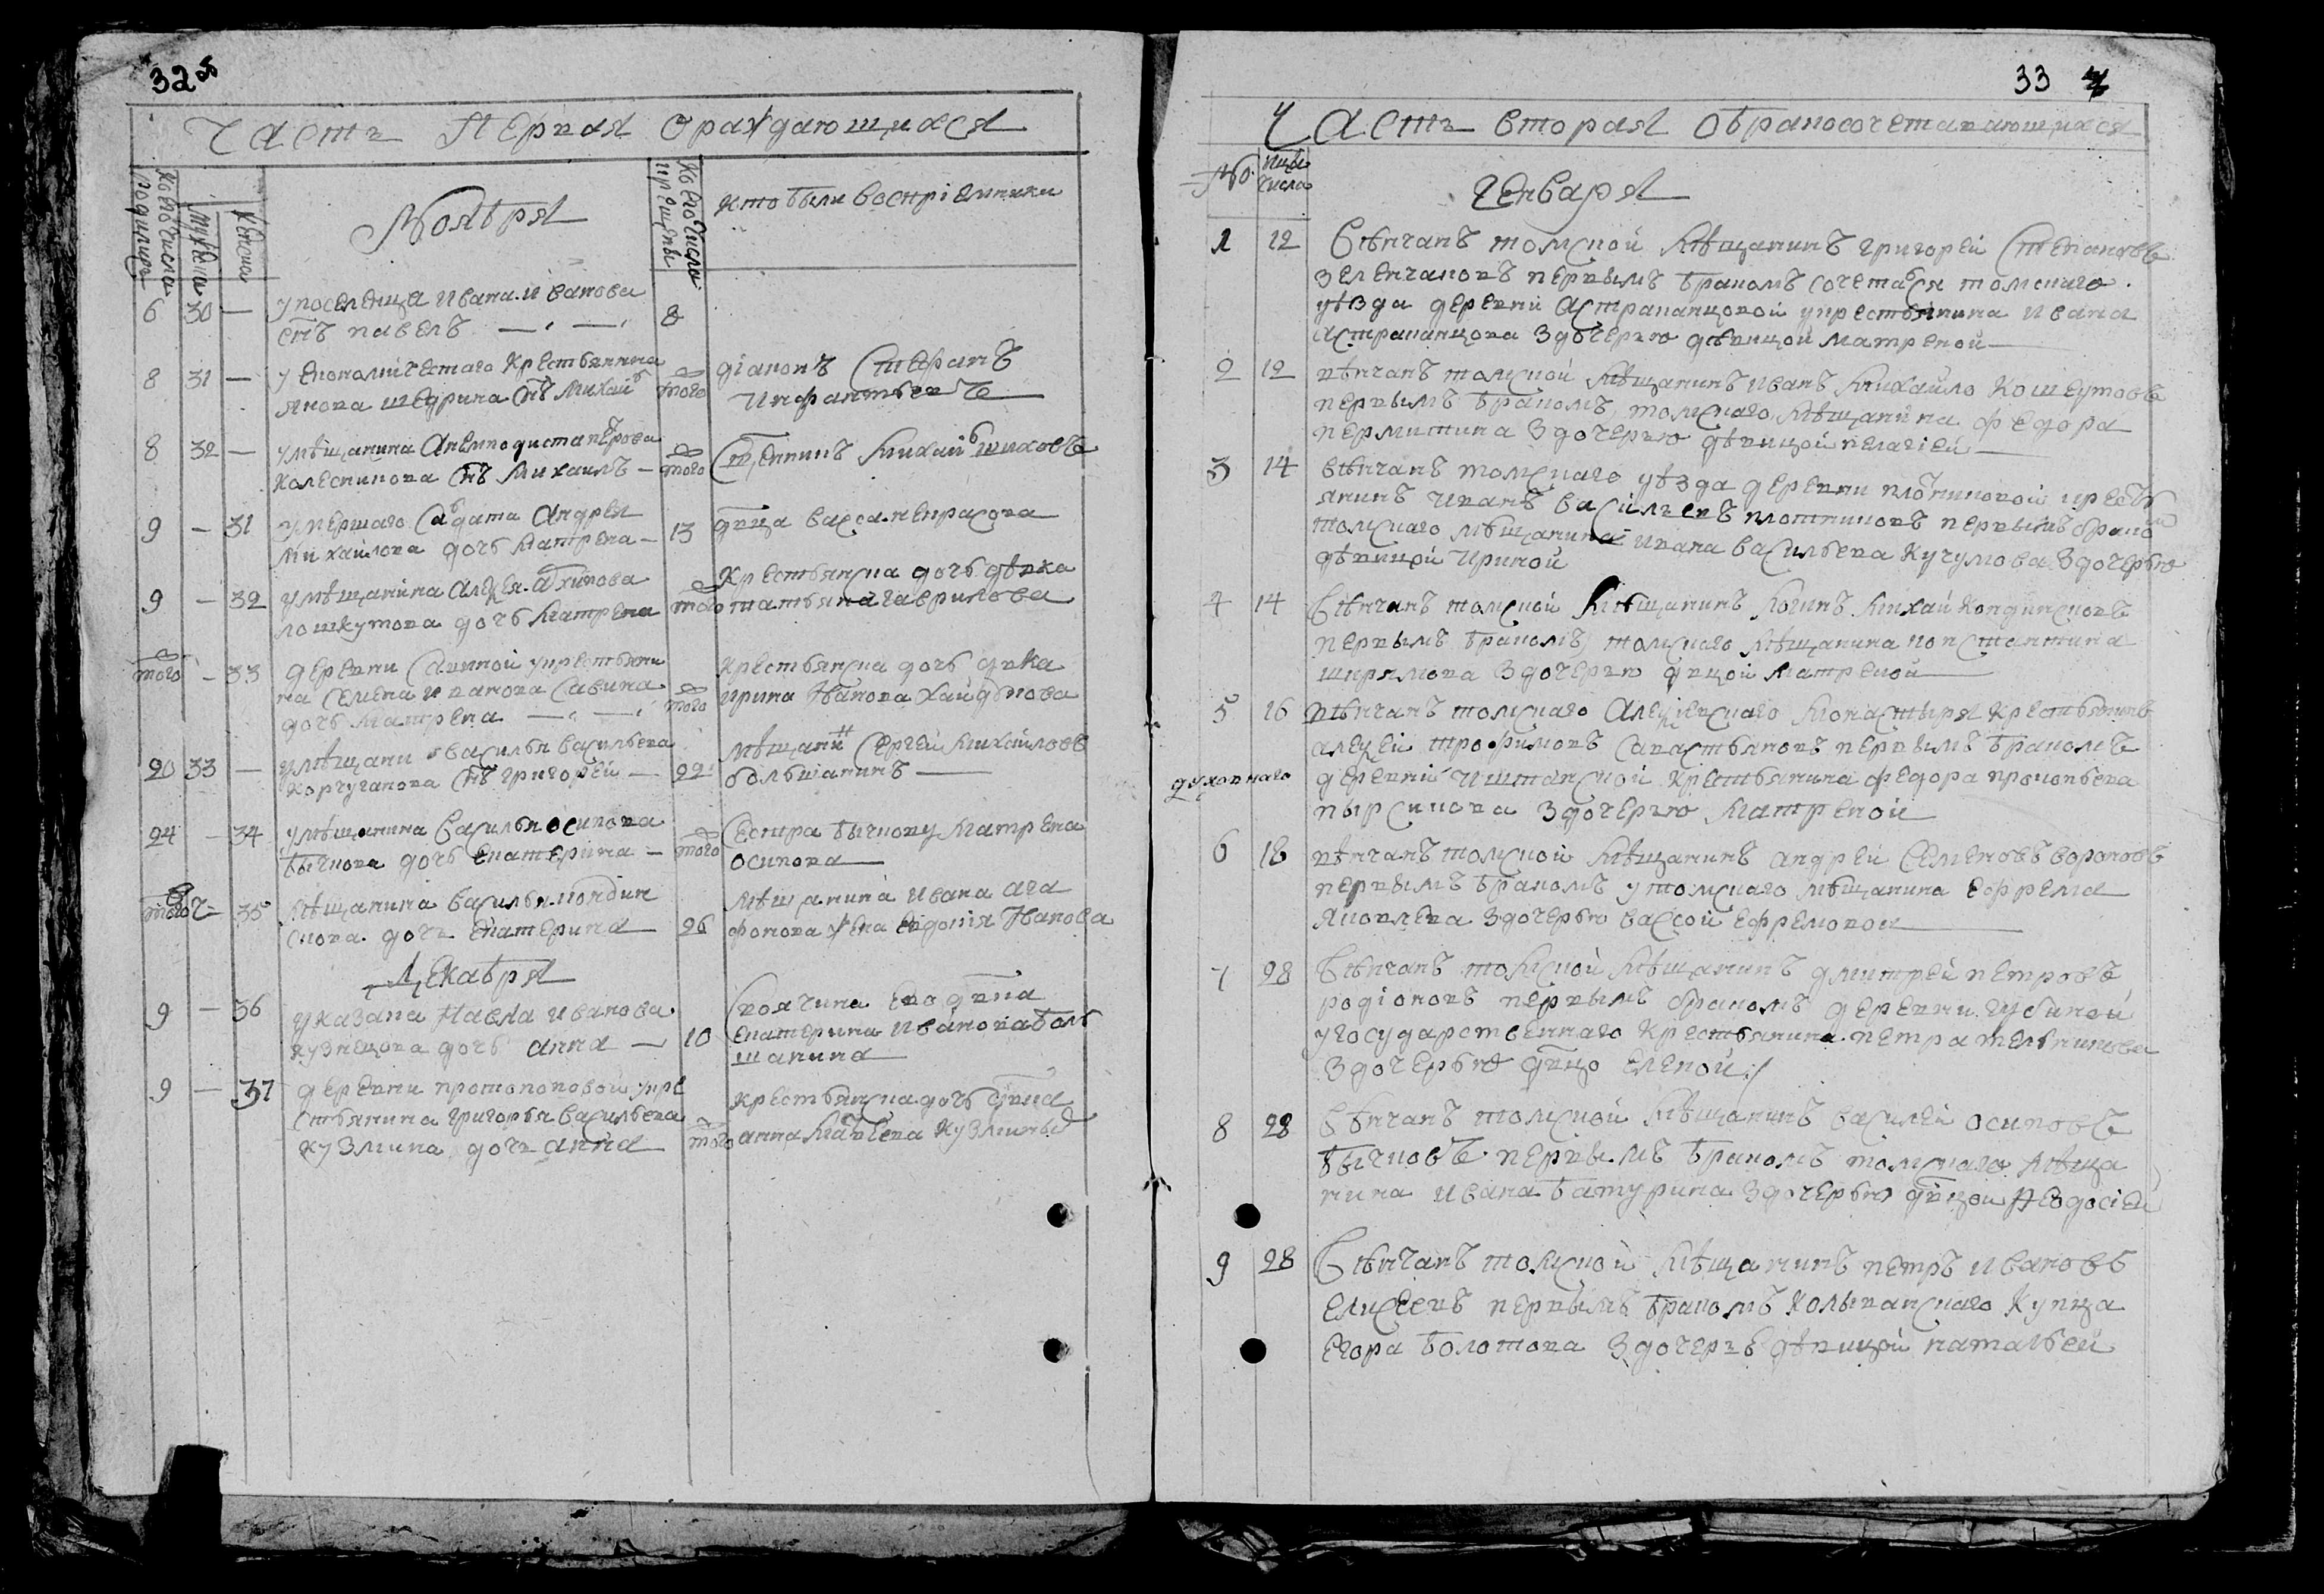 32 об
Часть Первая Ораждающихся
Коего числа родились
Мужеска
Женска
Ноября
Коего числа крещены
Кто были воспріемники
6 30 — у поселенца Ивана Иванова
снъ павелъ — 8
8 31 — у Економическаго Крестьянина
Якова щедрина снъ Михайл
того
діаконъ Стефанъ
8 32 — умѣщанина Анемподиста пѣтрова
Колесникова снъ Михаилъ —
того
Сщенникъ Михайл шиховъ
9 — 31 умершаго Салдата Андрея
Михайлова дочь Матрена — 13
двца васса некрасова
9 — 32 умѣщанина Алексея Архипова
лошкутова дочь Матрена
того
Крестьянска дочь дѣвка
татьяна гаврилова
того — 33 деревни Савиной укрестьяни
на Семена Иванова Савина
дочь Матрена —
того
Крестьянска дочь двка
ирина Иванова
20 33 — умѣщани василья васильева
Корчуганова снъ григорей — 22
мѣщанин Сергей Михайловъ
большанинъ
24 — 34 умѣщанина Василья осипова
бычкова дочь Екатерина —
того
Сестра бычкову Матрена
осипова
того — 35 Мѣщанина василья кондин
скова дочь Екатерина 26
Мѣщанина Ивана ага
фонова жена Евдокія Иванова
Декабря
9 — 36 указака Павла Иванова
кузнецова дочь анна — 10
Своячина Ево двка
Екатерина Иванова боль
шанина
9 — 37 деревни протопоповой укре
стьянина григорья васильева
кузмина дочь анна
того
Крестьянска дочь двка
анна Матвеева Кузминых
33
Часть вторая Обракосочетавающихся
№ числа
Генваря
1 12 Вѣнчанъ томской мѣщанинъ григорей Степановъ
зеленчановъ первымъ бракомъ сочетался томскаго
уѣзда деревни Астраханцовой у крестьянина Ивана
астраханцова здочерью дѣвицой матреной
2 12 вѣнчанъ томской мѣщанинъ иванъ Михайло Кошкутовъ
первымъ бракомъ, томскаго мѣщанина федора
пермитина здочерью дѣвицой пелагіей
3 14 вѣнчанъ томскаго уѣзда деревни плотниковой крестьь
янинъ иванъ василиевъ плотниковъ первымъ браком
томскаго мѣщанина ивана васильева Кучумова здочерью
дѣвицой ириной
4 14 Вѣнчанъ томской мѣщанинъ Михай Кондинсковъ
первымъ бракомъ, томскаго мѣщанина константина
ширямова здочерью двцой Матреной
5 16 вѣнчанъ томскаго Алексіевскаго Монастыря Крестьянинъ
алексей трофимовъ Савастьяновъ первымъ бракомъ
духовнаго деревни Иштанской Крестьянина федора прокопьева
пырсикова здочерью Матреной
6 18 вѣнчанъ томской мѣщанинъ андрей Семеновъ вороновъ
первымъ бракомъ у томскаго мѣщанина Ефрема
Яковлева здочерью вассой Ефремовой
7 28 Вѣнчанъ томской мѣщанинъ дмитрей петровъ
родіоновъ первымъ бракомъ деревни губиной
у государственнаго Крестьянина петра мельникова
здочерью двцо еленой
8 28 Вѣнчанъ томской мѣщанинъ василей осиповъ
бычковъ первымъ бракомъ томскаго мѣща
нина Ивана батурина здочерью двцой Феодосіей
9 28 Вѣнчанъ томской мѣщанинъ петръ ивановъ
Елисеевъ первымъ бракомъ Колыванскаго Купца
Егора болотова здочерь дѣвицой натальей